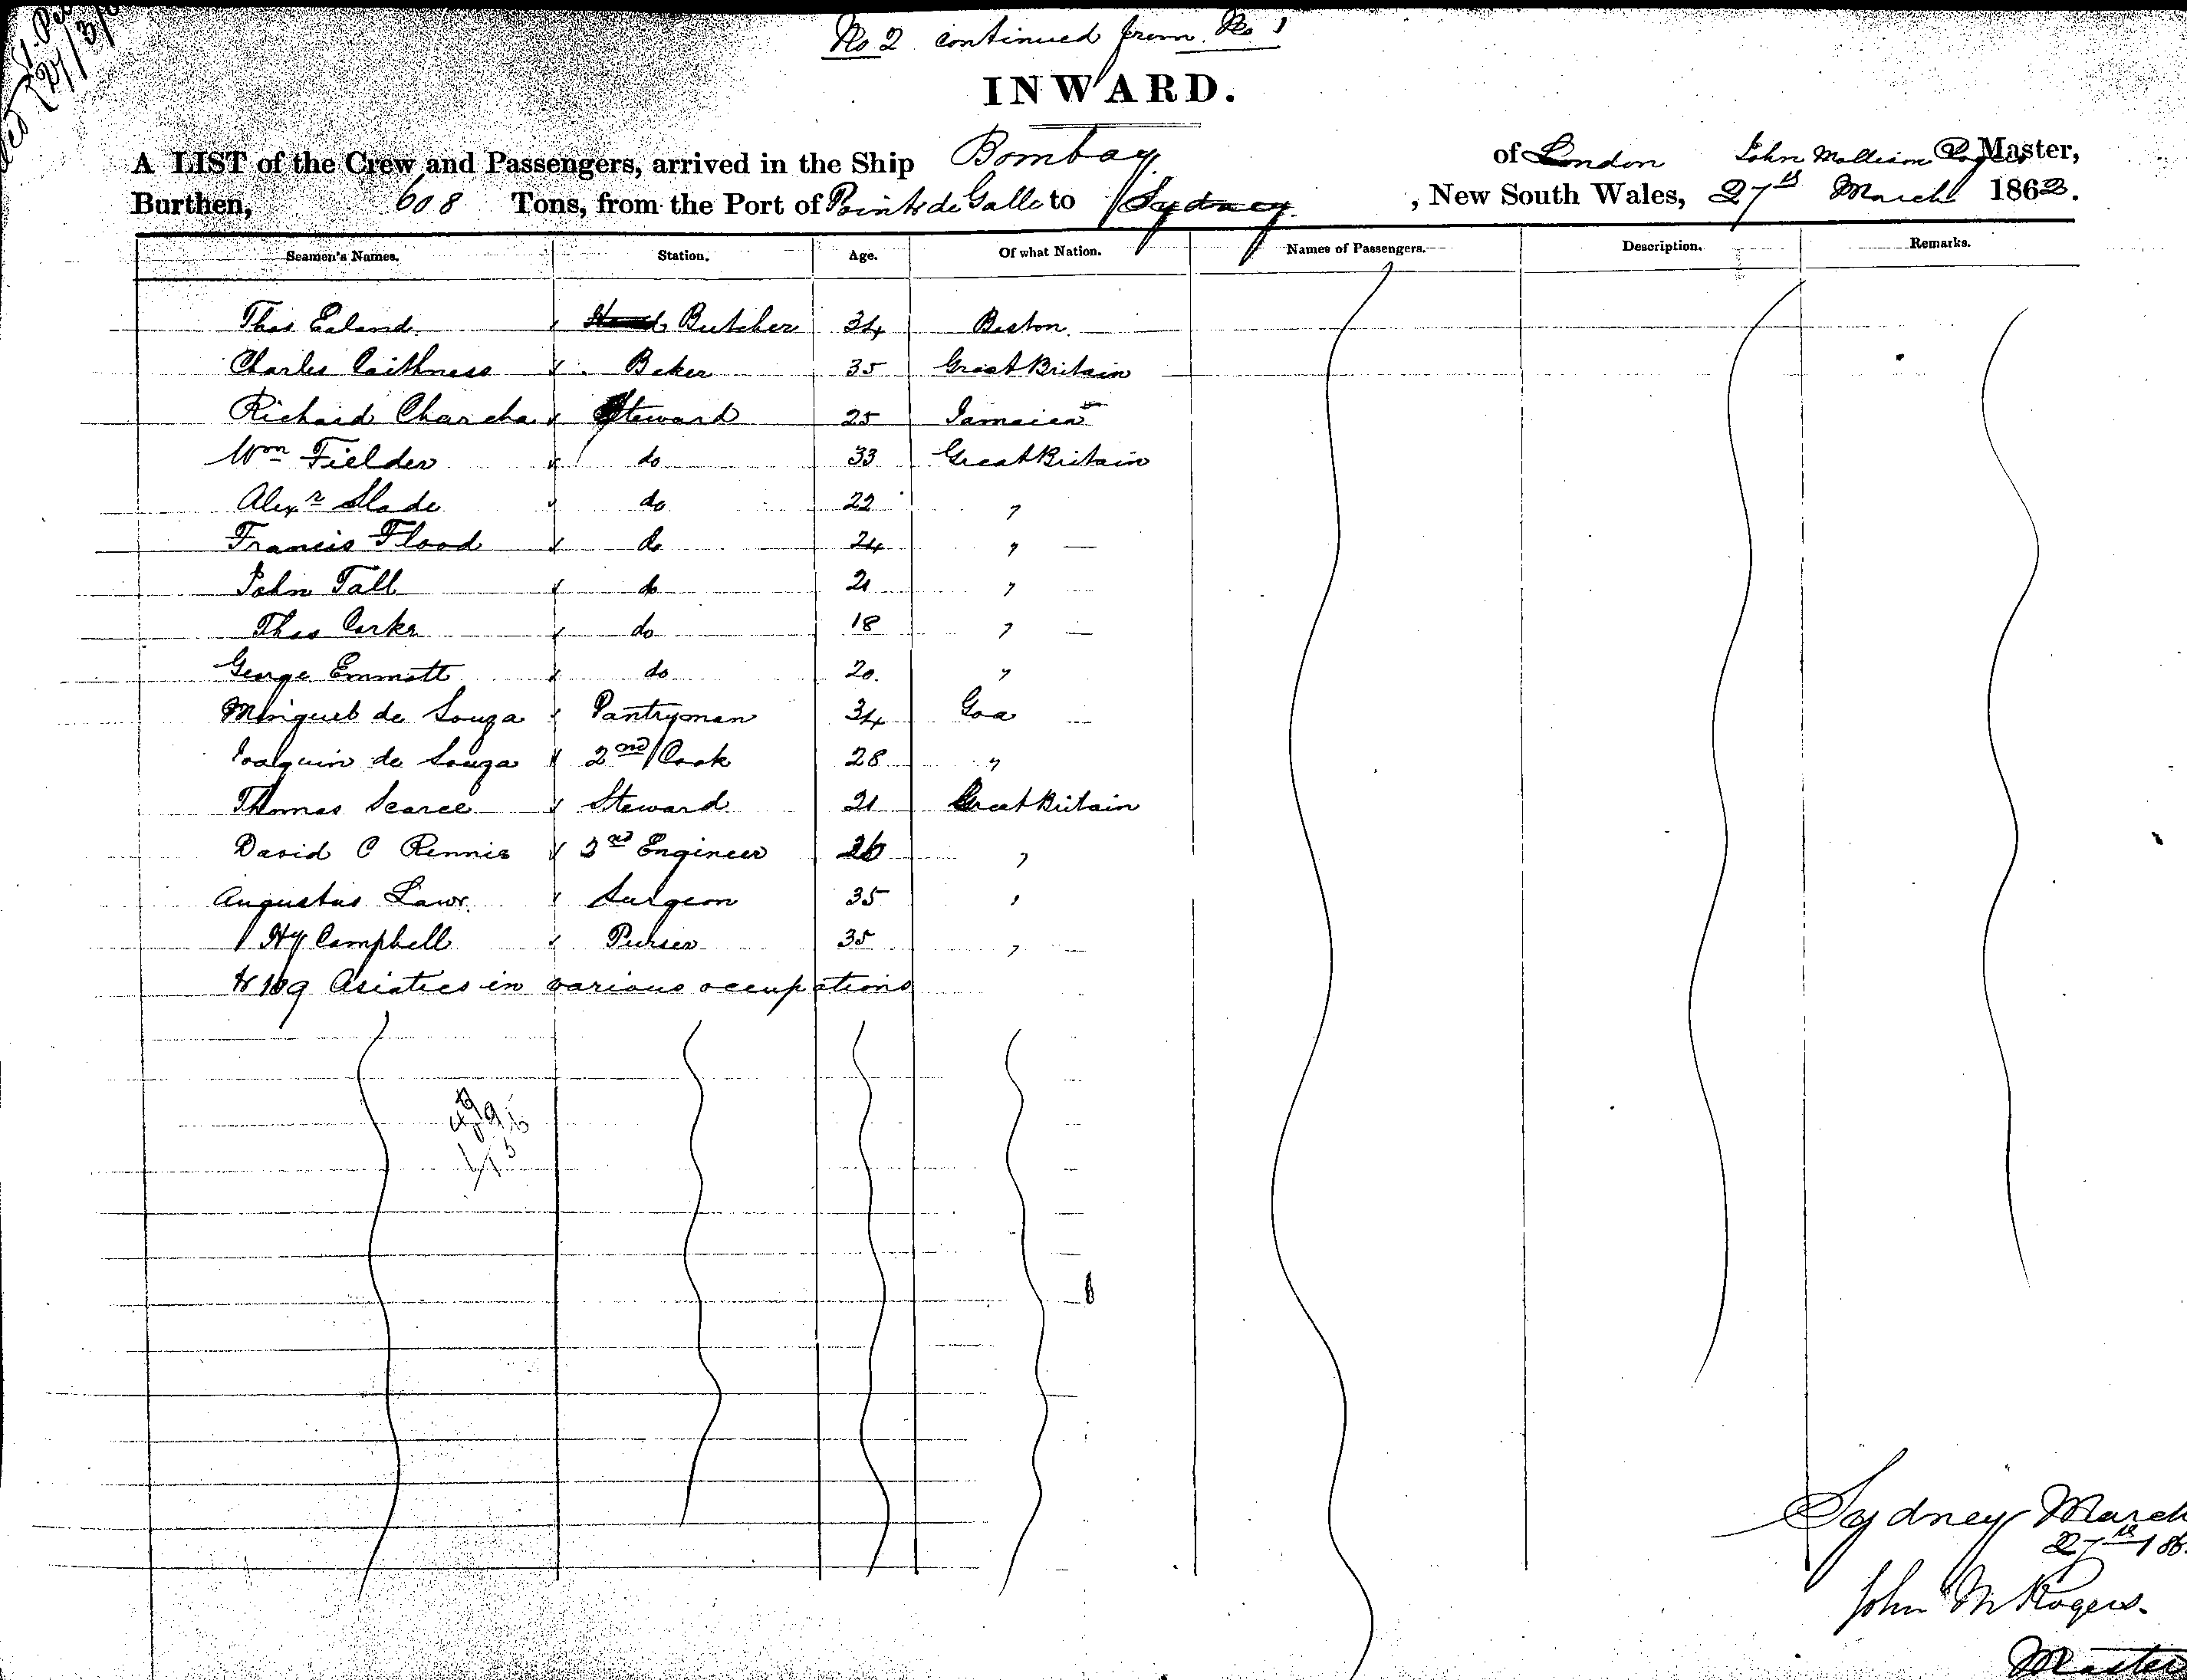 No 2 continued from No 1
INWARD.
A LIST of the Crew and Passengers, arrived in the Ship Bombay of London John Mollison Rogers Master,
Burthen, 608 Tons, from the Port of Point de Galle to Sydney, New South Wales, 27th March 1862.
Seamen's Names. Station. Age. Of what Nation. Names of Passengers. Description. Remarks.
Thos Ealand Butcher 34 Boston
Charles Caithness Baker 35 Great Britain
Richard Steward 25 Jamaica
Wm Fielder do 33 Great Britain
Alexr Slade do 22 "
Francis Flood do 24 "
John Tall do 21 "
Thos Corke do 18 "
George Emmott do 20 "
Minguel de Souza Pantryman 34 Goa
Joaquin de Souza 2nd Cook 28 "
Thomas Searce Steward 21 Great Britain
David C Rennie Engineer 26 "
Augustus Lawr Surgeon 35 "
Hy Campbell Purser 35 "
109 Asiatics in various occupations
Sydney March
27th 186
John M Rogers
Master